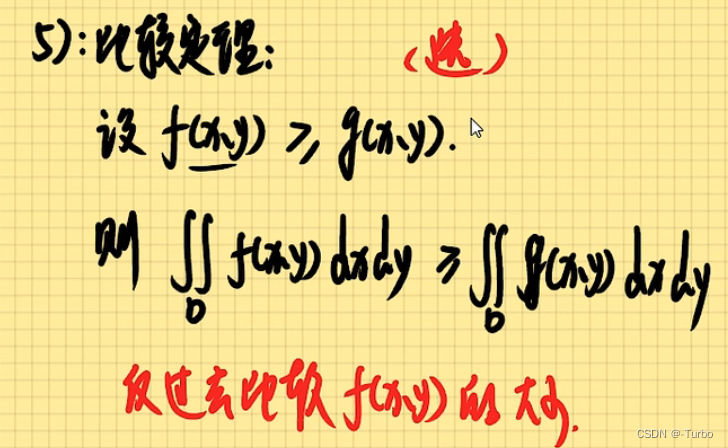 5):比较定理: (选)
设 f(x,y) ≥ g(x,y).
则 ∬ f(x,y) dxdy ≥ ∬ g(x,y) dxdy
D D
反过去比较 f(x,y) 的大小.
CSDN @-Turbo